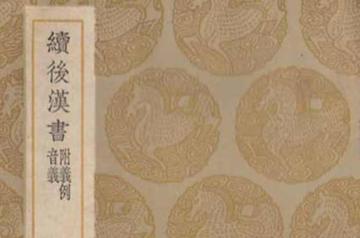 續後漢書
附義例
音義